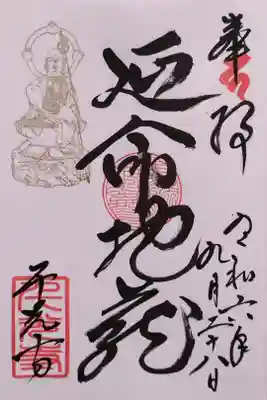 奉拝
延命地蔵
令和六年
九月二十八日
不先寺